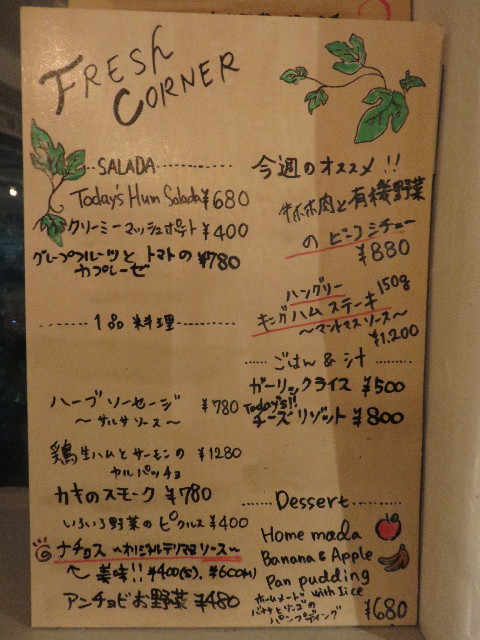 FRESH
CORNER
SALADA
Today's Hum Salada ¥680
クリーミーマッシュポテト ¥400
グレープフルーツと トマトの ¥780
カプレーゼ
1品料理
ハーブソーセージ ¥780
〜サルサソース〜
鶏生ハムとサーモンの ¥1280
カルパッチョ
カキのスモーク ¥780
いろいろ野菜のピクルス ¥400
ナチョス 〜 ソース〜
美味!! ¥400(S). ¥600(M)
アンチョビお野菜 ¥480
今週のオススメ!!
牛ホホ肉と有機野菜
の ビーフシチュー
¥880
ハングリー
キングハムステーキ 150g
ソース〜
¥1,200
ごはん & 汁
ガーリックライス ¥500
Today's!!
チーズリゾット ¥800
Dessert
Home mada
Banana & Apple
Pan pudding
with Ice
ホームメード
バナナとリンゴの
パンプディング
¥680